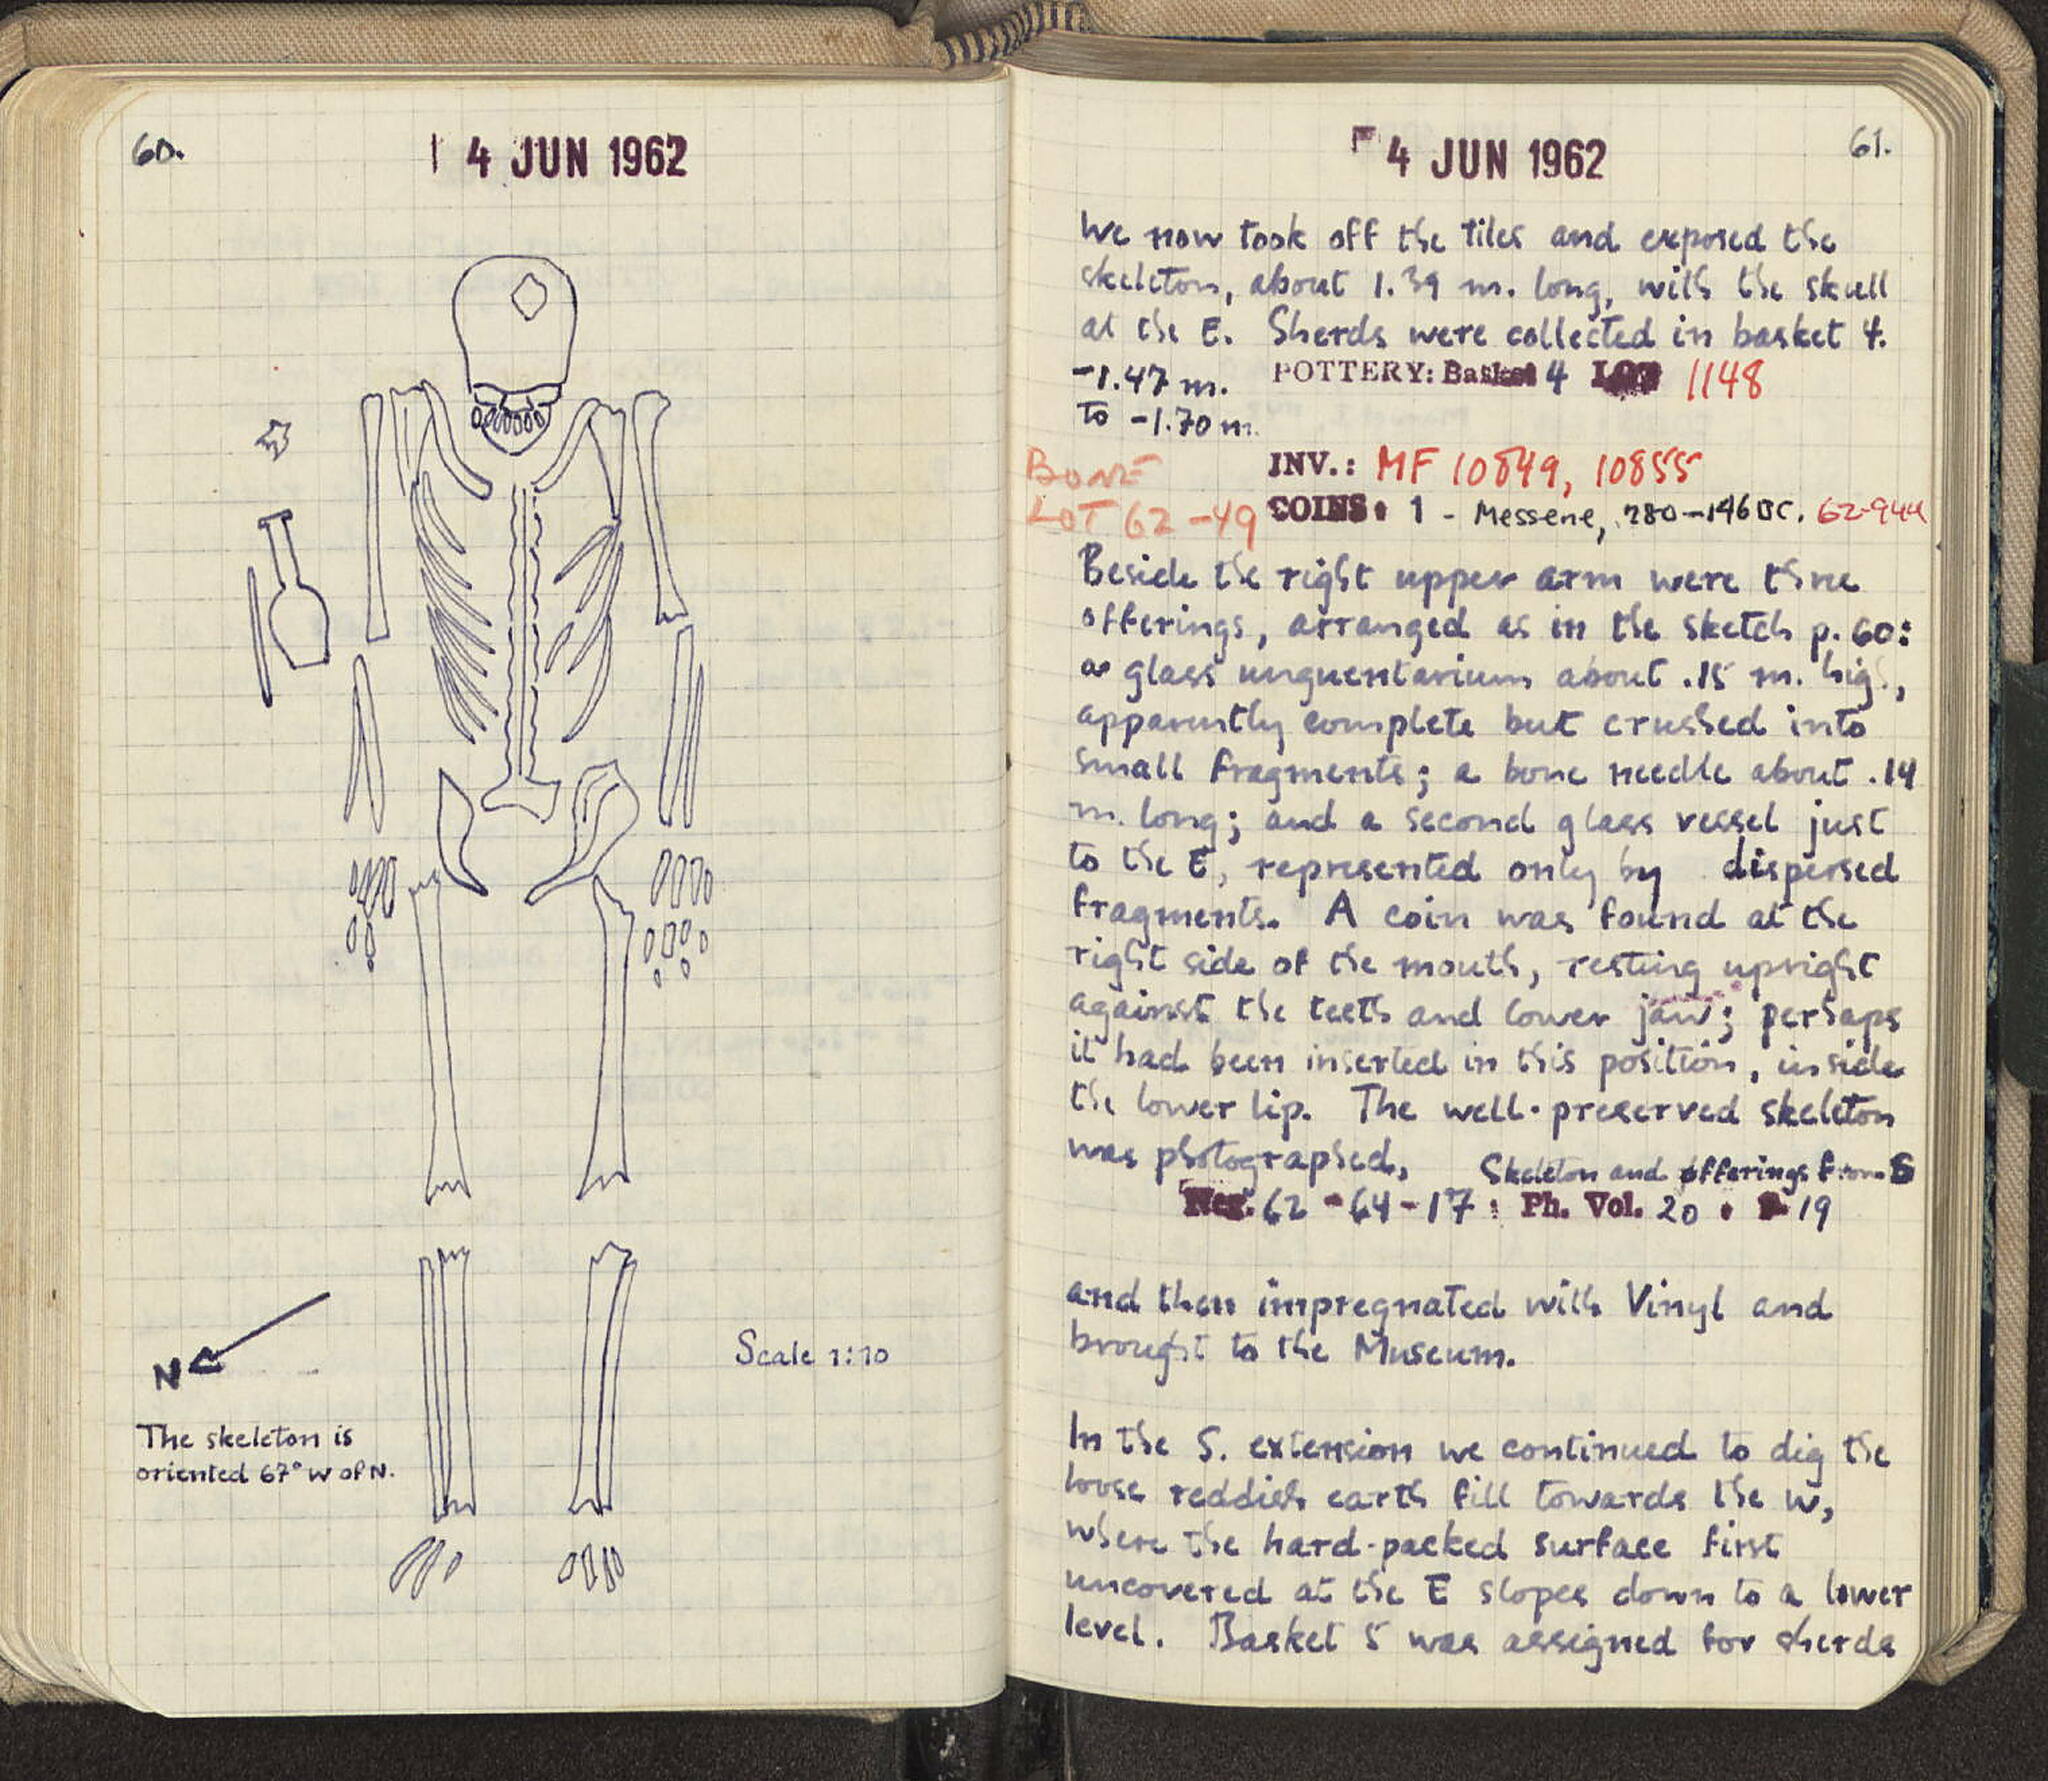 60.
4 JUN 1962
N
Scale 1:10
The skeleton is
oriented 67° W of N.
4 JUN 1962
61.
We now took off the tiles and exposed the
skeleton, about 1.39 m. long, with the skull
at the E. Sherds were collected in basket 4.
-1.47 m.
to -1.70 m.
POTTERY: Basket 4 LOT 1148
BONE
LOT 62-49
INV.: MF 10849, 10855
COINS: 1 - Messene, 280-146 BC. 62-944
Beside the right upper arm were three
offerings, arranged as in the sketch p. 60:
a glass unguentarium about .15 m. high,
apparently complete but crushed into
small fragments; a bone needle about .14
m. long; and a second glass vessel just
to the E, represented only by dispersed
fragments. A coin was found at the
right side of the mouth, resting upright
against the teeth and lower jaw; perhaps
it had been inserted in this position, inside
the lower lip. The well-preserved skeleton
was photographed,
Skeleton and offerings from S
Neg. 62-64-17: Ph. Vol. 20 . P. 19
and then impregnated with Vinyl and
brought to the Museum.
In the S. extension we continued to dig the
loose reddish earth fill towards the W,
where the hard-packed surface first
uncovered at the E slopes down to a lower
level. Basket 5 was assigned for sherds